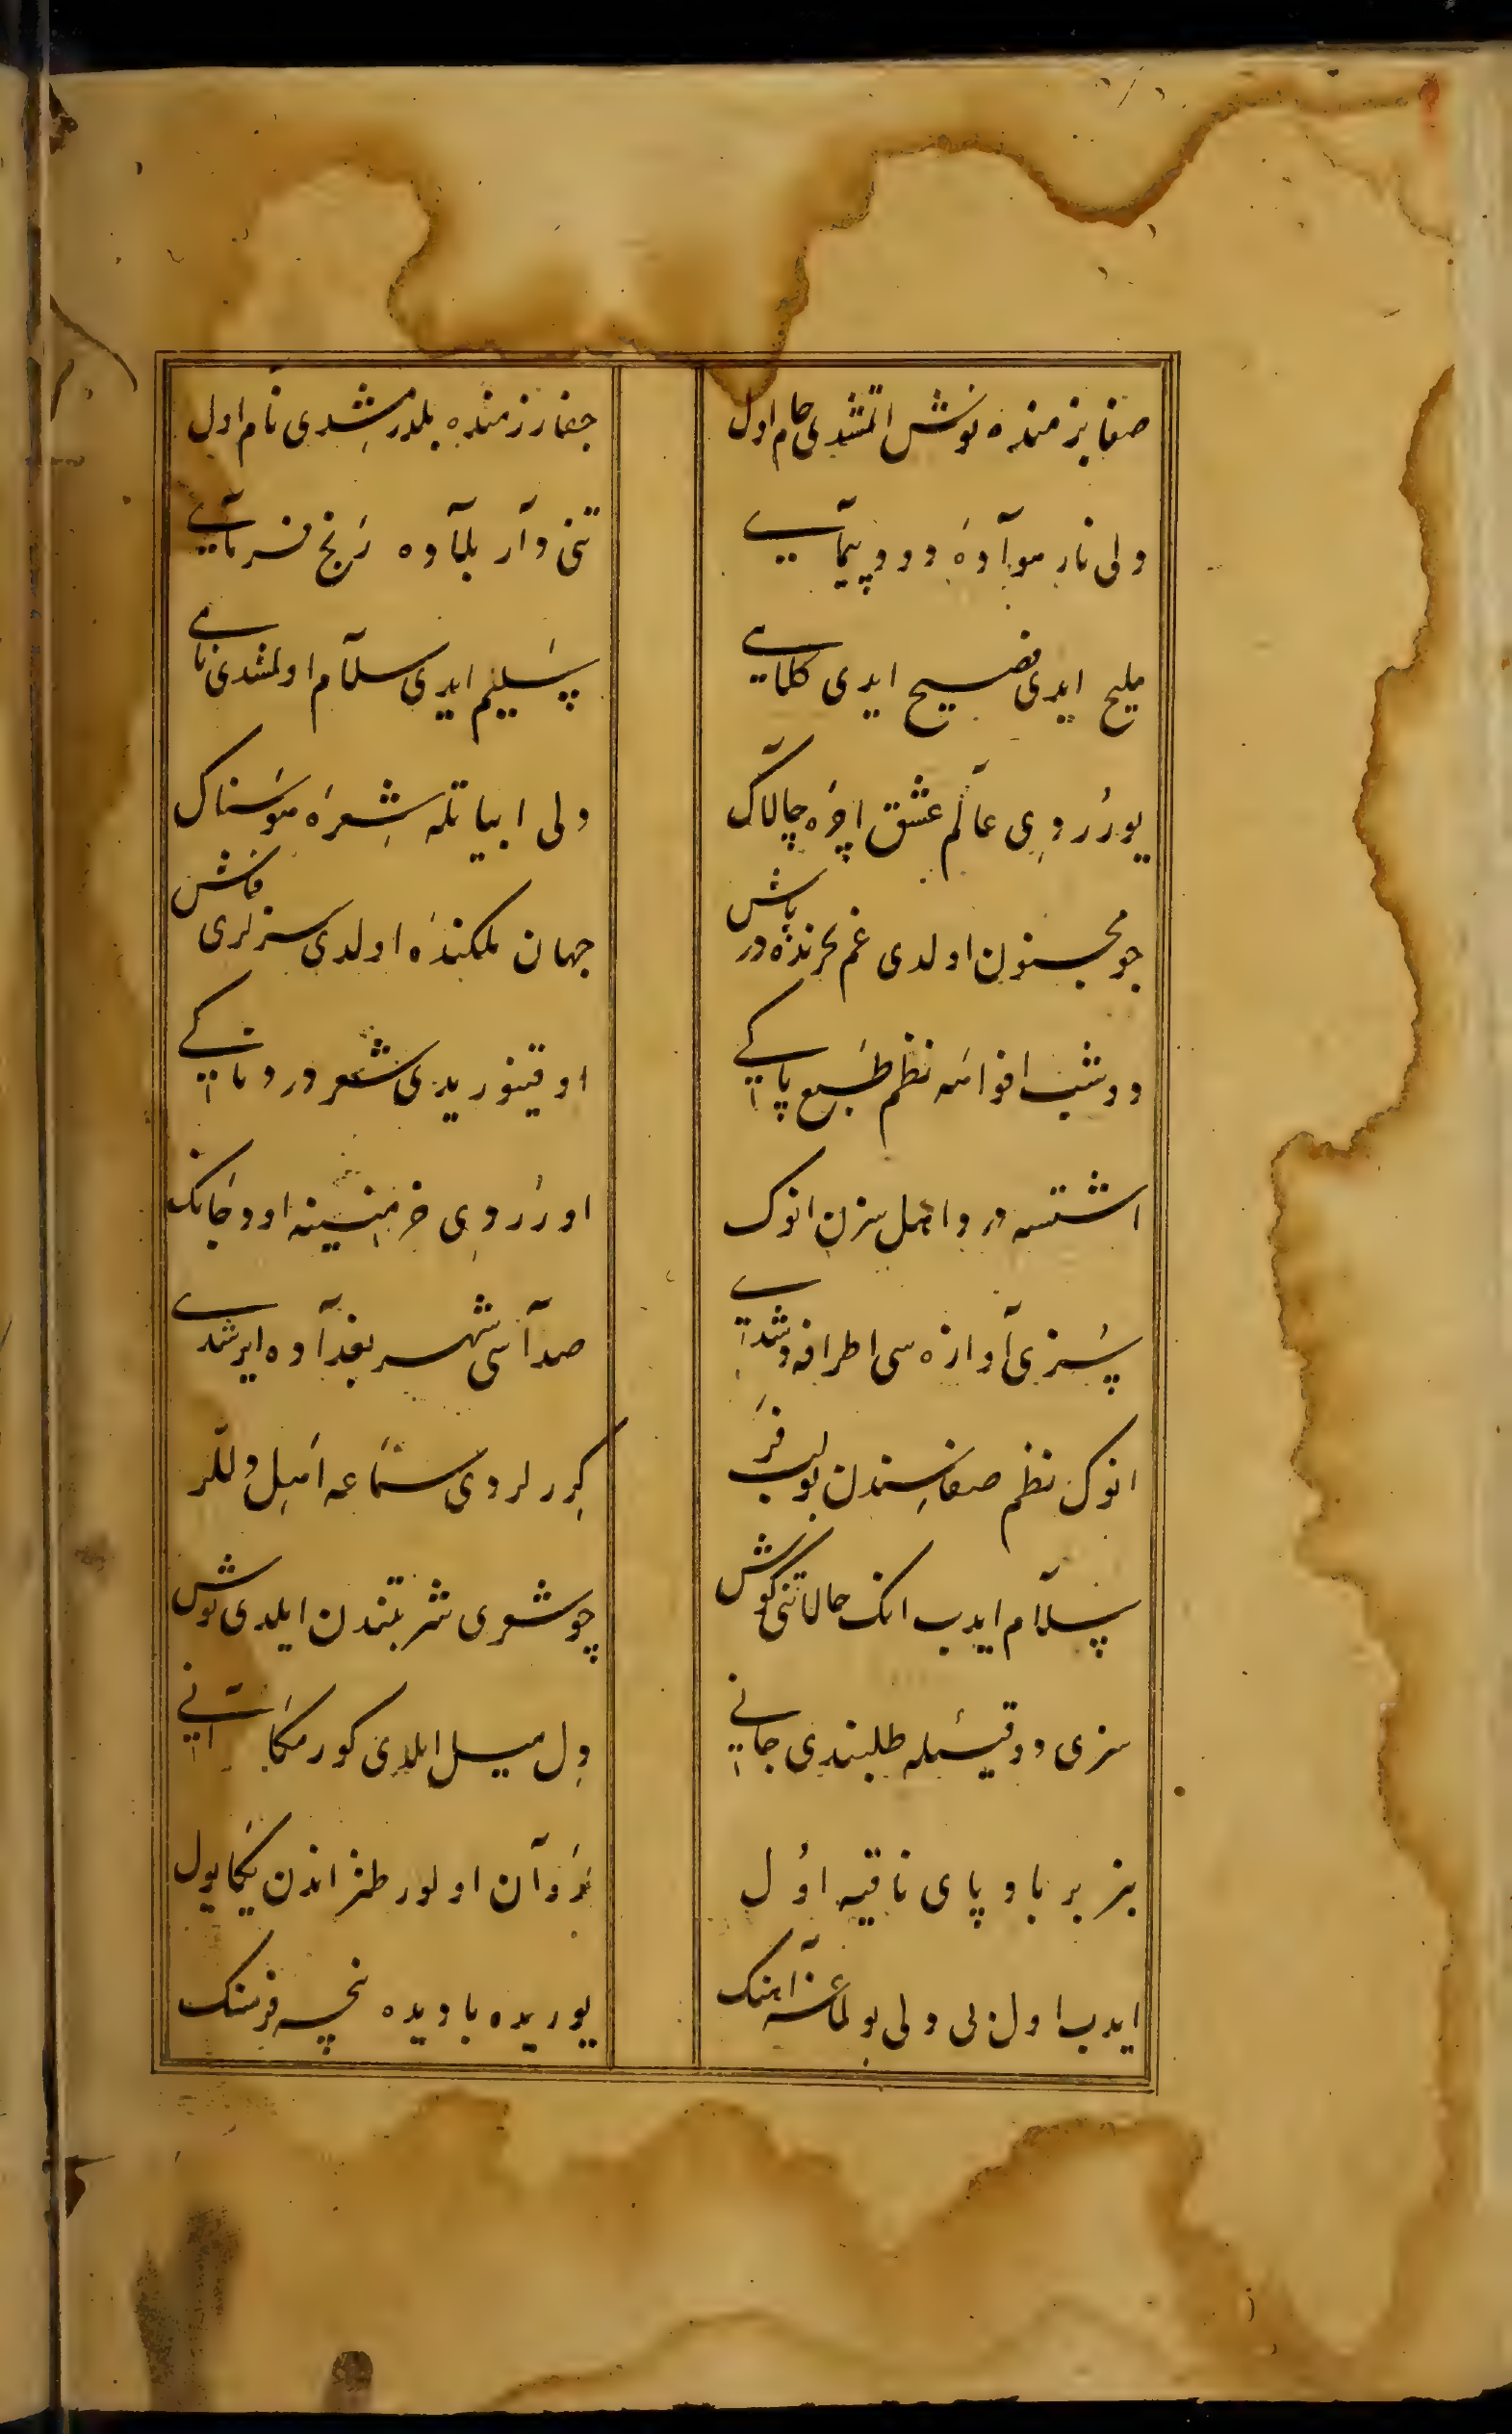 صفا بزمنده نوش اتمشدی جام اول
جفا رزمنده بلدرمشدی نام اول
ولی نار هواده دود پیمای
تنی وار بلاده رنج فرمای
ملیح ایدی فصیح ایدی کلامی
سلیم ایدی سلام اولمشدی نامی
یوررودی عالم عشق اچره چالاک
ولی ابیاتله شعره هوسناک
چو مجنون اولدی غم بحرنده در پاش
جهان ملکنده اولدی سزلری فاش
دوشب افواهه نظم طبع پاکی
اوقینوریدی شعر دردناکی
اشتسه درد اهل سزن انوک
اورردی خرمنینه اود جانک
سزی آوازه سی اطرافه دشدی
صداسی شهر بغداده ایرشدی
انوک نظم صفاسندن بولب فر
کررلردی سماعه اهل دللر
سلام ایدب انک حالاتنی کوش
چو شعری شربتندن ایلدی نوش
سزی ذوقیله طلبندی جانی
دل میل ایلدی کورمکا آنی
بنر بر باد پای ناقیه اول
روان اولور طمز اندن یکا یول
ایدب اول لی ولی بولماغه آهنک
یوریده بادیده نچه فرسنک